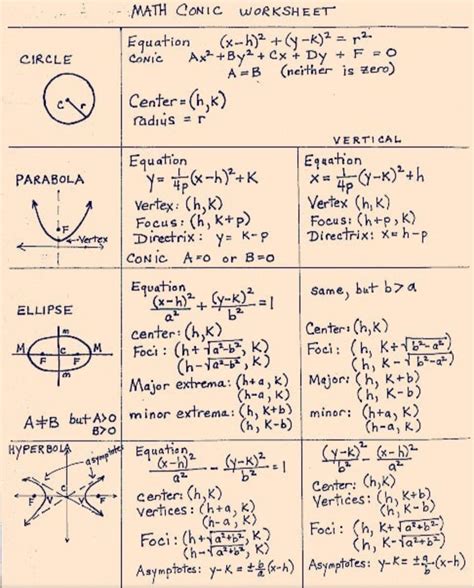 MATH CONIC WORKSHEET
CIRCLE
C r
Equation (x-h)² + (y-k)² = r²
CONIC Ax² + By² + Cx + Dy + F = 0
A = B (neither is zero)
Center = (h,k)
radius = r
VERTICAL
PARABOLA
F
Vertex
Equation
y = 1/4p (x-h)² + K
Vertex: (h,k)
Focus: (h, K+p)
Directrix: y= K-p
CONIC A=0 or B=0
Equation
x = 1/4p (y-k)² + h
Vertex (h,k)
Focus: (h+p, K)
Directrix: x = h-p
ELLIPSE
m
M C M
F F
m
A≠B but A>0
B>0
Equation
(x-h)²/a² + (y-k)²/b² = 1
center: (h,k)
Foci: (h+√a²-b², K)
(h-√a²-b², K)
Major extrema: (h+a, k)
(h-a, k)
minor extrema: (h, K+b)
(h, K-b)
same, but b>a
Center: (h,k)
Foci: (h, K+√b²-a²)
(h, K-√b²-a²)
Major: (h, K+b)
(h, K-b)
minor: (h+a, K)
(h-a, K)
HYPERBOLA
asymptotes
C
F V V F
Equation
(x-h)²/a² - (y-k)²/b² = 1
center: (h,k)
Vertices: (h+a, K)
(h-a, K)
Foci: (h+√a²+b², K)
(h-√a²+b², K)
Asymptotes: y-K = ±b/a(x-h)
(y-k)²/b² - (x-h)²/a²
Center: (h,k)
Vertices: (h, K+b)
(h, K-b)
Foci: (h, K+√a²+b²)
(h, K-√a²+b²)
Asymptotes: y-K = ±b/a(x-h)